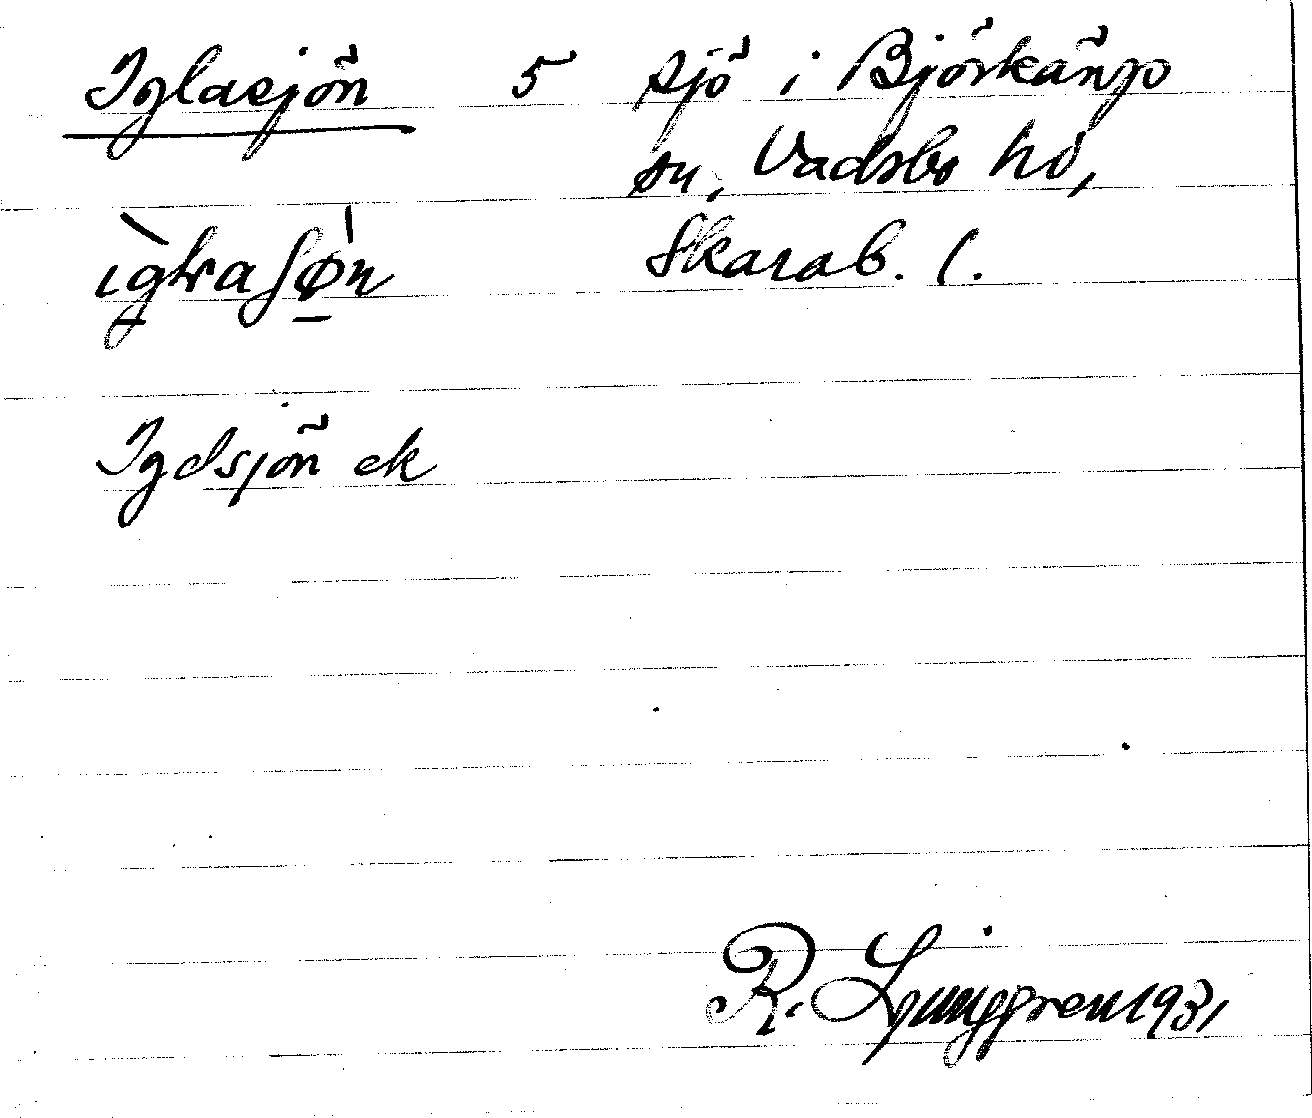 Iglasjön 5 sjö i Björkängs
sn, Vadsbo hd,
ìglraʃø̀n Skarab. l.
Igdsjön ek
R. Ljunggren 1931